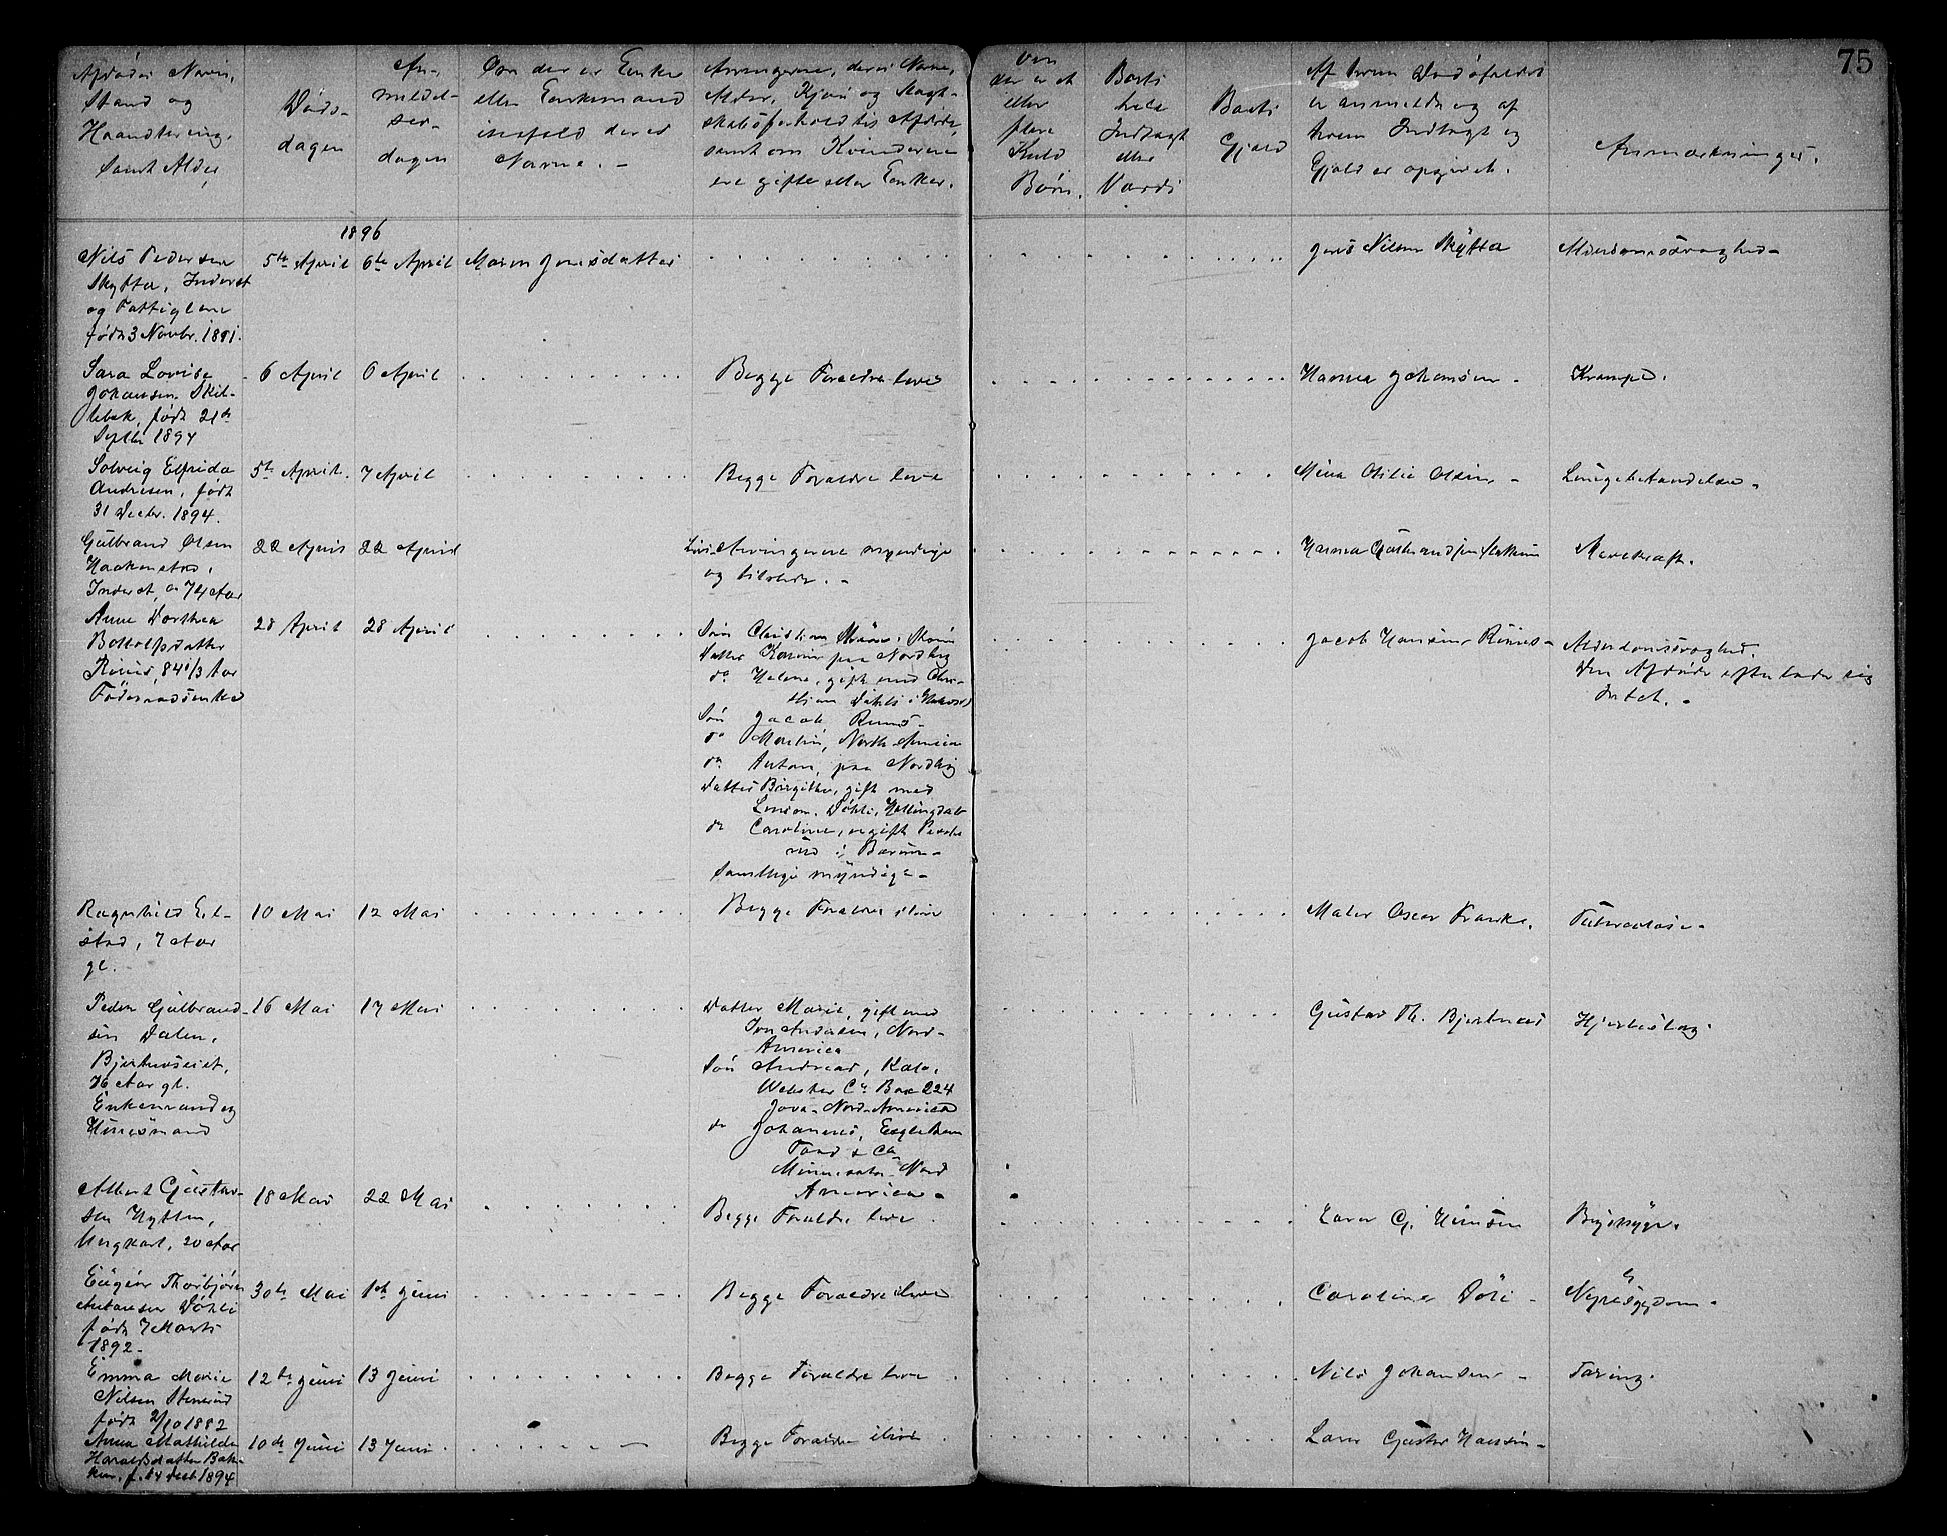 75
Afdødes Navn,
Stand og
Haandtering,
Samt Alder
Døds-
dagen
An-
meldel-
ses-
dagen
Om der er Enke
eller Enkemand
isaafald deres
Navne. -
Arvingerne, deres Navne,
Alder, Kjøn og Slægt-
skabsforhold til Afdøde,
samt om Kvinderne
ere gifte eller Enker.
Om
der er et
eller
flere
Kuld
Børn.
Boets
hele
Indtægt
eller
Værdi
Boets
Gjæld
Af hvem Dødsfaldet
er anmeldt og af
hvem Indtægt og
Gjæld er opgivet.
Anmærkninger.
1896
Nils Pedersen
Skytta, Inderst
og Fattiglem
født 3 Novbr. 1891.
5te April
6te April
Maren Jensdatter
Jens Nilsen Skytta
Alderdomssvaghed -
Sara Lovise
Johansen Skil-
lebæk, født 21de
Septbr 1894
6 April
6 April
Begge Forældre lever
Hanna Johansen -
Krampe.
Solveig Elfrida
Andresen, født
31 Decbr. 1894.
5te April.
7 April
Begge Forældre leve
Mina Otilie Olsen -
Lungebetændelse -
Gulbrand Olsen
Haakenstad,
Inderst, 74 Aar
22 April
22 April
Arvingerne myndige
og tilstede. -
Hanna
Mavekræft.
Anne Dorthea
Bottolfsdatter
84 1/3 Aar
Føderaadsenke
28 April
28 April
Søn Christian
Datter Karen paa Nordby
do Helene, gift med Chri-
stian Døhli i
Søn Jacob
do Martin, North America
do Anton, paa Nordby
Datter Birgithe, gift med
Døhli, Hallingdal
do Caroline, ugift
i Bærum -
Samtlige myndige -
Jacob Hansen
Alderdomssvaghed.
Den Afdøde efterlader sig
Intet. -
Ragnhild Eil-
stad, 7 Aar
gl.
10 Mai
12 Mai
Begge Forældre ilive
Maler Oscar Franke.
Tuberculose -
Peder Gulbrand-
sen Dalen,
Bjertnæseiet,
76 Aar gl.
Enkemand og
Huusmand
16 Mai
17 Mai
Datter Marie, gift med
Andersen, Nord-
America
Søn Andreas, Kalo,
Webster Co Box 224
Jova - Nord-America
do Johannes,
& Co
Minnesota - Nord
America -
Gustav Th. Bjertnæs
Hjerteslag.
Albert Gustav-
sen Hytten,
Ungkarl, 20 Aar
18 Mai
22 Mai
Begge Forældre leve
Brystsyge.
Eugen Thorbjørn
Antonsen Døhli
født 7 Marts
1892 -
30te Mai
1ste Juni
Begge Forældre ilive
Caroline Døli -
Nyresygdom -
Emma Marie
Nilsen Stensrud
født 2/10 1882
12te Juni
13 Juni
Begge Forældre leve
Nils Johansen -
Tæring.
Anna Mathilde
Haraldsdatter Bak-
ken. f. 14 Decb 1894
10de Juni
13 Juni
Begge Forældre ilive
Gustav Hansen -